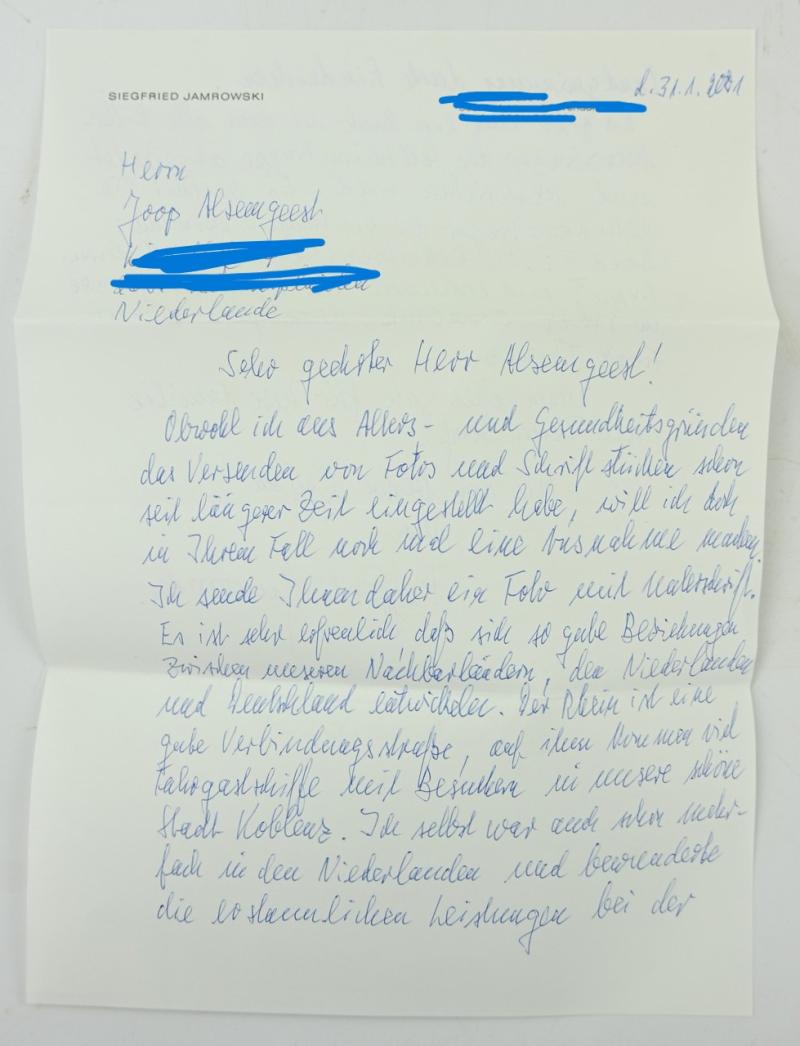 SIEGFRIED JAMROWSKI
d. 31.1.2001
Herrn
Joop Alsemgeest
Niederlande
Sehr geehrter Herr Alsemgeest!
Obwohl ich aus Alters- und Gesundheitsgründen
das Versenden von Fotos und Schriftstücken schon
seit längerer Zeit eingestellt habe, will ich doch
in Ihrem Fall noch mal eine Ausnahme machen.
Ich sende Ihnen daher ein Foto mit Unterschrift.
Es ist sehr erfreulich daß sich so gute Beziehungen
zwischen unseren Nachbarländern, den Niederlanden
und Deutschland entwickeln. Der Rhein ist eine
gute Verbindungsstraße, auf ihm kommen viel
Fahrgastschiffe mit Besuchern in unsere schöne
Stadt Koblenz. Ich selbst war auch schon mehr-
fach in den Niederlanden und bewunderte
die erstaunlichen Leistungen bei der